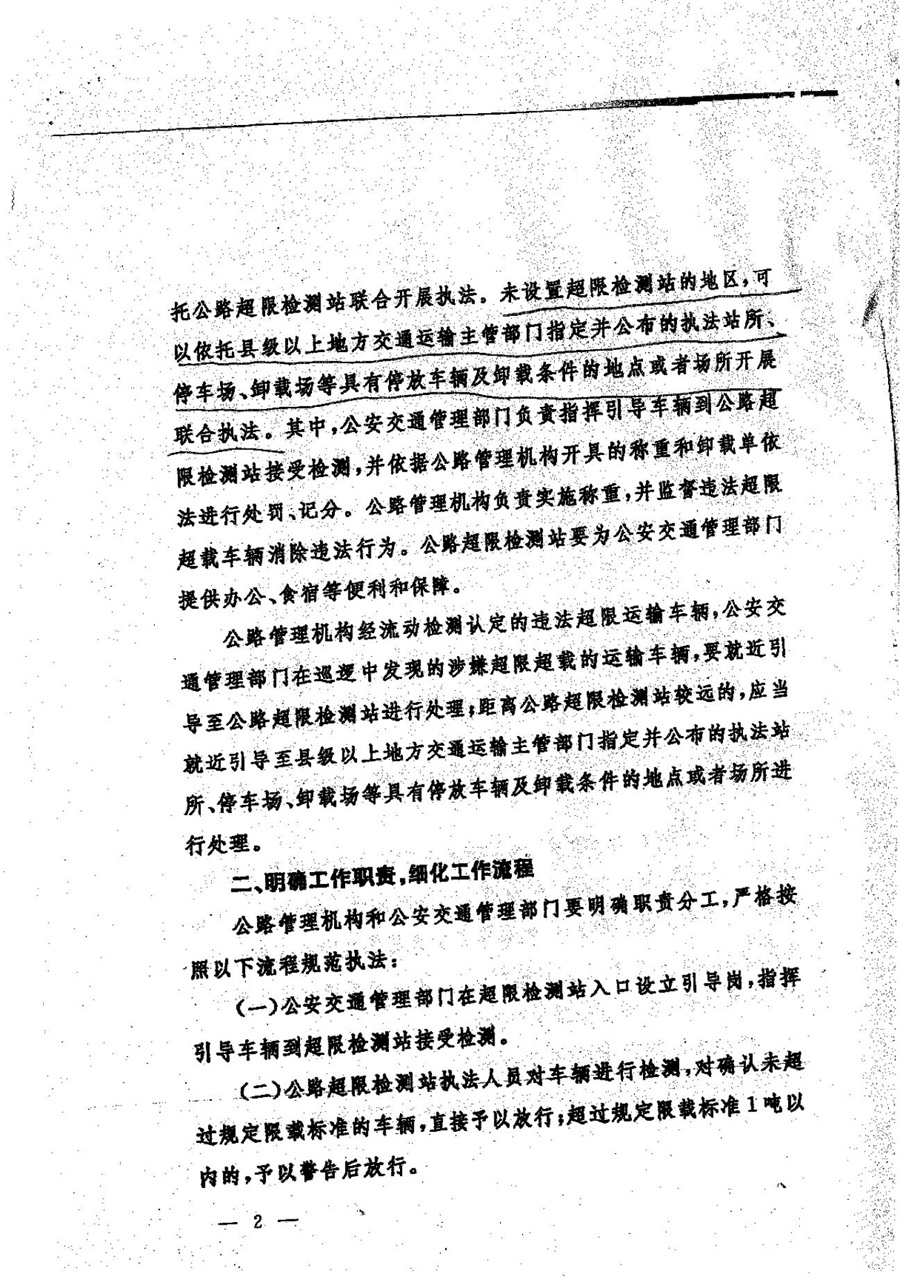 托公路超限检测站联合开展执法。未设置超限检测站的地区,可
以依托县级以上地方交通运输主管部门指定并公布的执法站所、
停车场、卸载场等具有停放车辆及卸载条件的地点或者场所开展
联合执法。其中,公安交通管理部门负责指挥引导车辆到公路超
限检测站接受检测,并依据公路管理机构开具的称重和卸载单依
法进行处罚、记分。公路管理机构负责实施称重,并监督违法超限
超载车辆消除违法行为。公路超限检测站要为公安交通管理部门
提供办公、食宿等便利和保障。
公路管理机构经流动检测认定的违法超限运输车辆,公安交
通管理部门在巡逻中发现的涉嫌超限超载的运输车辆,要就近引
导至公路超限检测站进行处理;距离公路超限检测站较远的,应当
就近引导至县级以上地方交通运输主管部门指定并公布的执法站
所、停车场、卸载场等具有停放车辆及卸载条件的地点或者场所进
行处理。
二、明确工作职责,细化工作流程
公路管理机构和公安交通管理部门要明确职责分工,严格按
照以下流程规范执法:
(一)公安交通管理部门在超限检测站入口设立引导岗,指挥
引导车辆到超限检测站接受检测。
(二)公路超限检测站执法人员对车辆进行检测,对确认未超
过规定限载标准的车辆,直接予以放行;超过规定限载标准1吨以
内的,予以警告后放行。
— 2 —